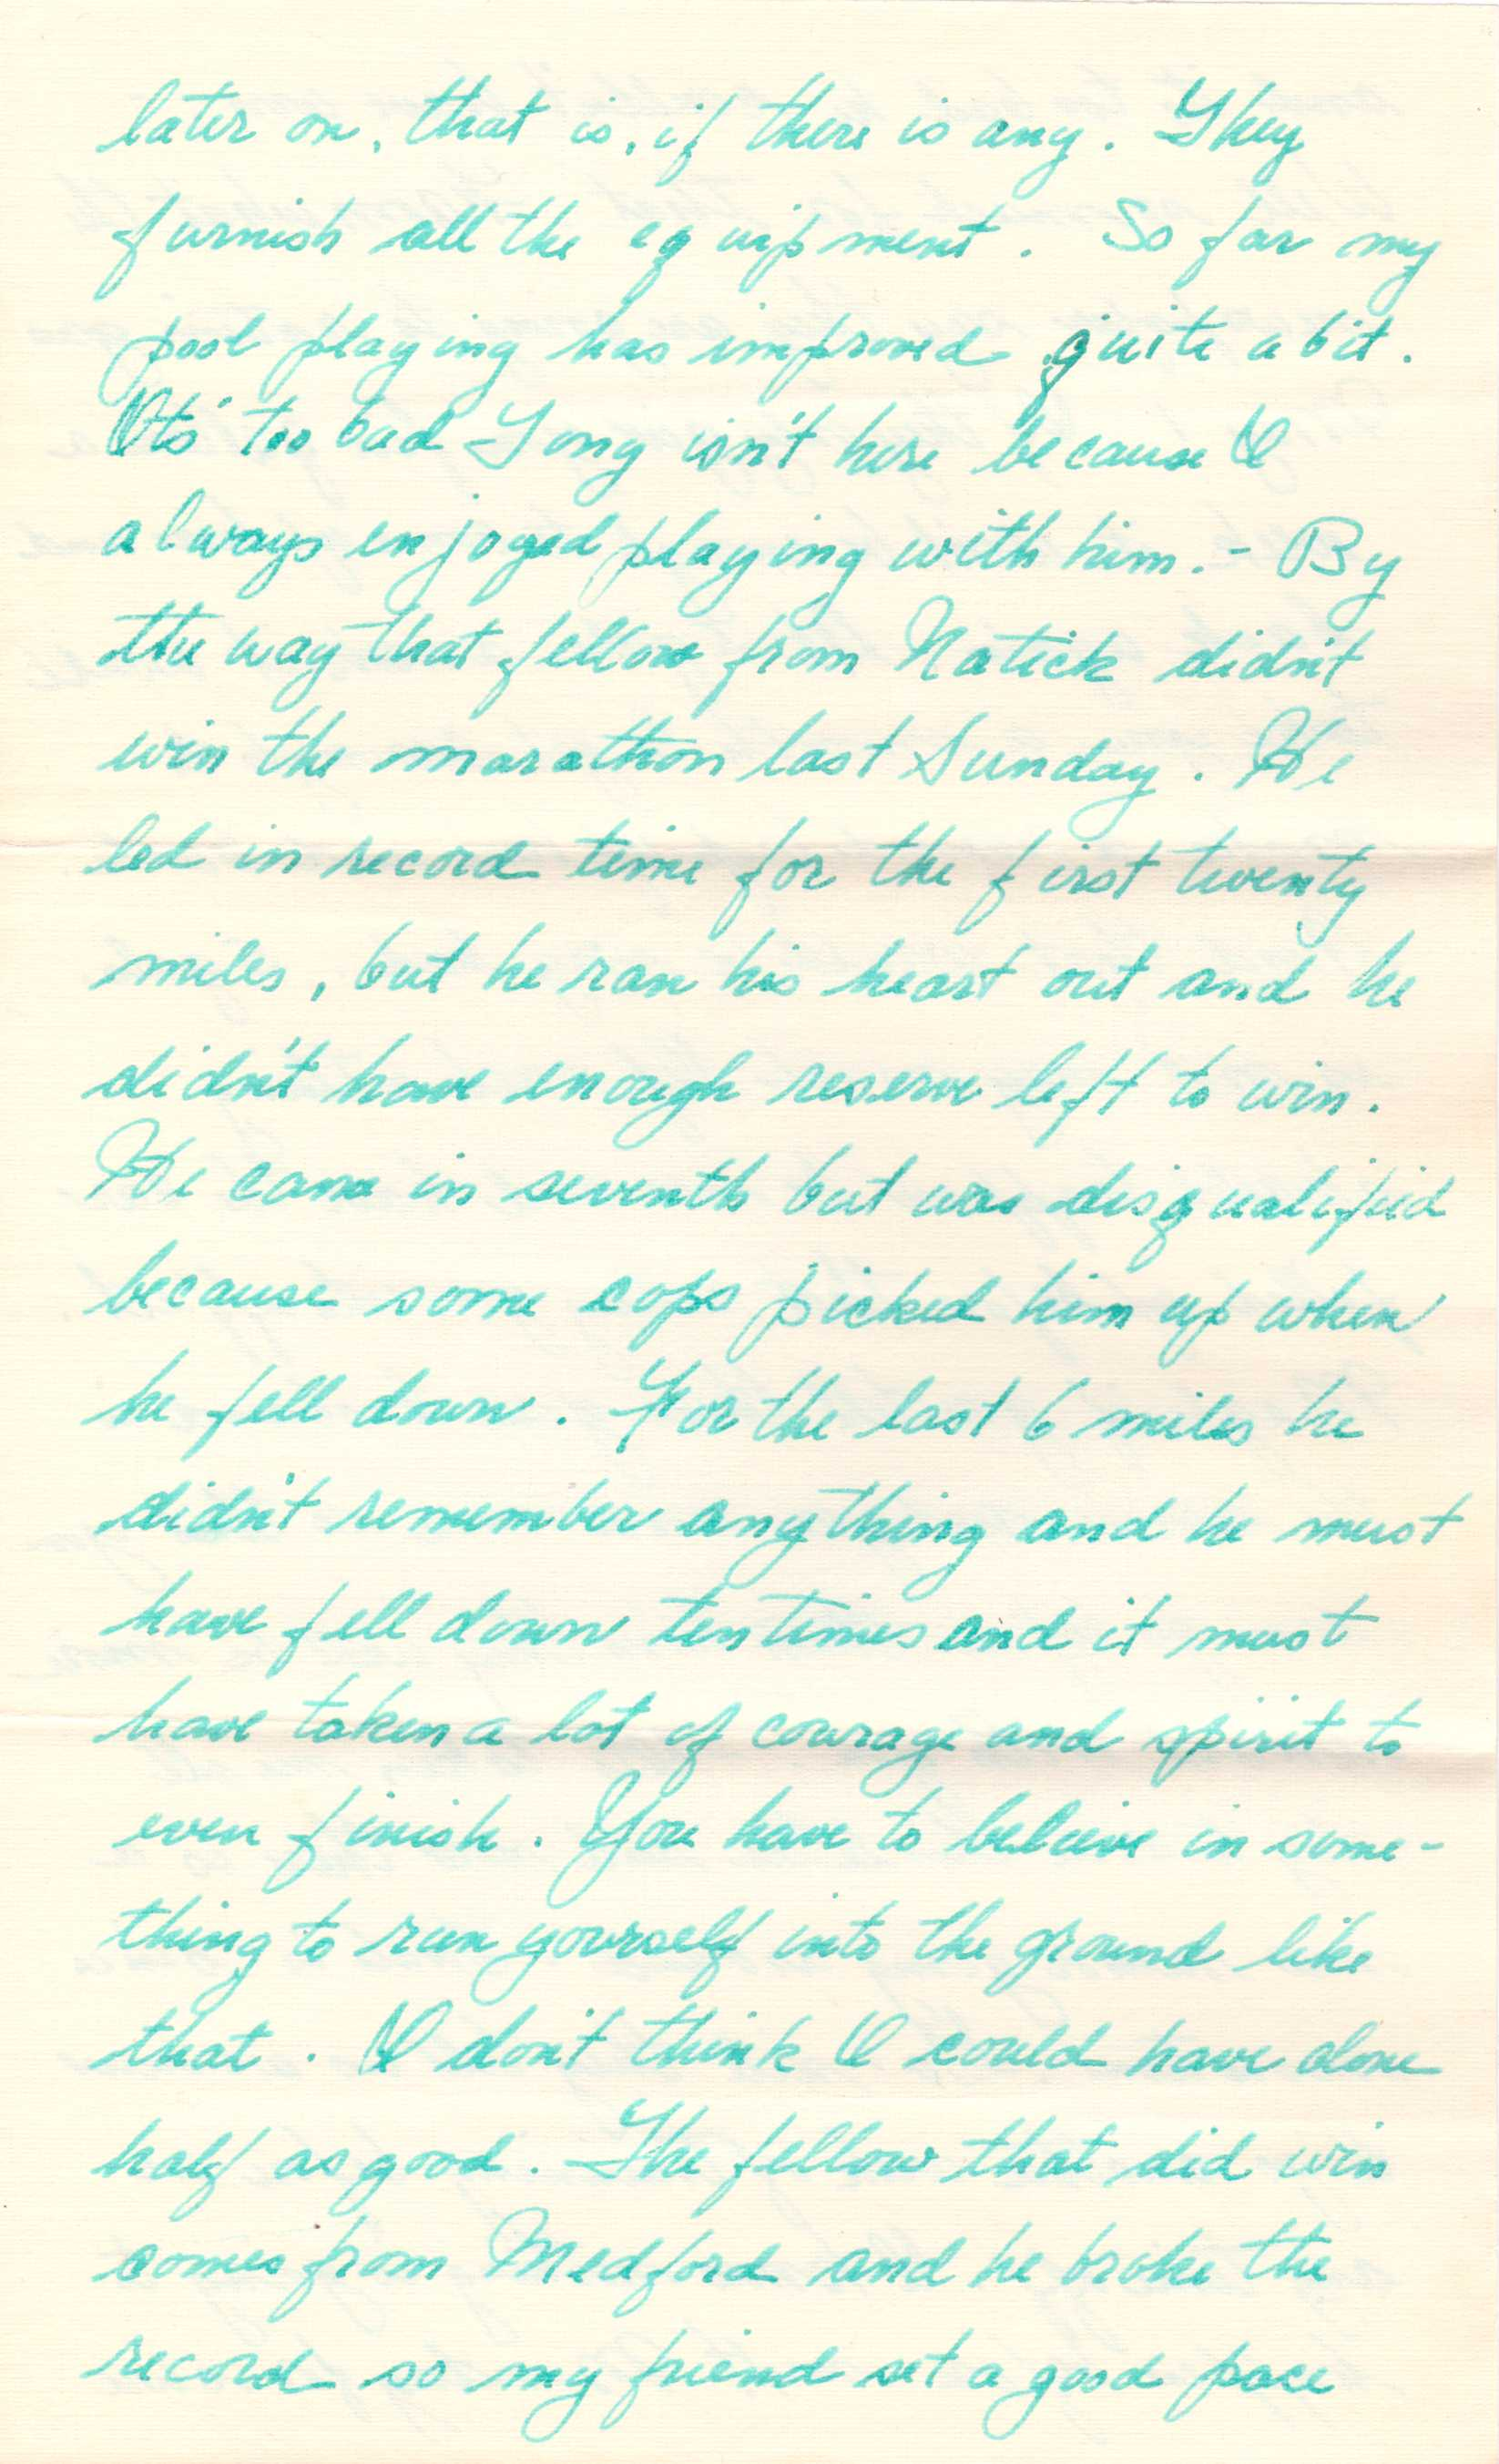 later on, that is, if there is any. They
furnish all the equipment. So far my
pool playing has improved quite a bit.
Its' too bad Tony isn't here because I
always enjoyed playing with him. - By
the way that fellow from Natick didn't
win the marathon last Sunday. He
led in record time for the first twenty
miles, but he ran his heart out and he
didn't have enough reserve left to win.
He came in seventh but was disqualified
because some cops picked him up when
he fell down. For the last 6 miles he
didn't remember anything and he must
have fell down ten times and it must
have taken a lot of courage and spirit to
even finish. You have to believe in some-
thing to run yourself into the ground like
that. I don't think I could have done
half as good. The fellow that did win
comes from Medford and he broke the
record so my friend set a good pace